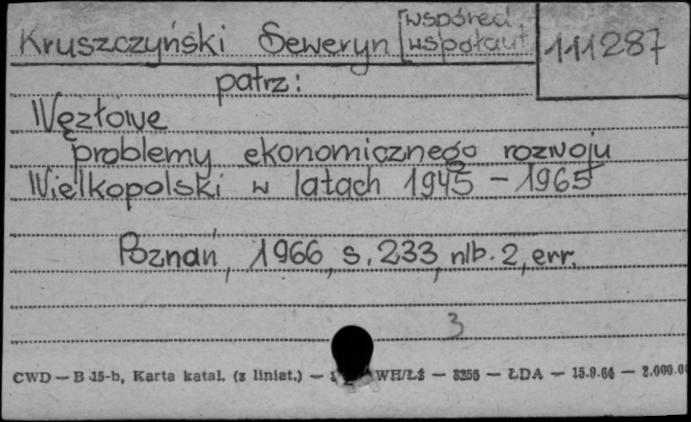 Kruszczyński Seweryn [współred.
współaut
111287
patrz:
Węzłowe
problemy ekonomicznego rozwoju
Wielkopolski w latach 1945 – 1965
Poznań, 1966, s. 233, nlb. 2, err.
3
CWD — B 15-b, Karta katal. (z liniat.) — WH/ŁŻ — 3255 — ŁDA — 15.9.64 — 2.000.0